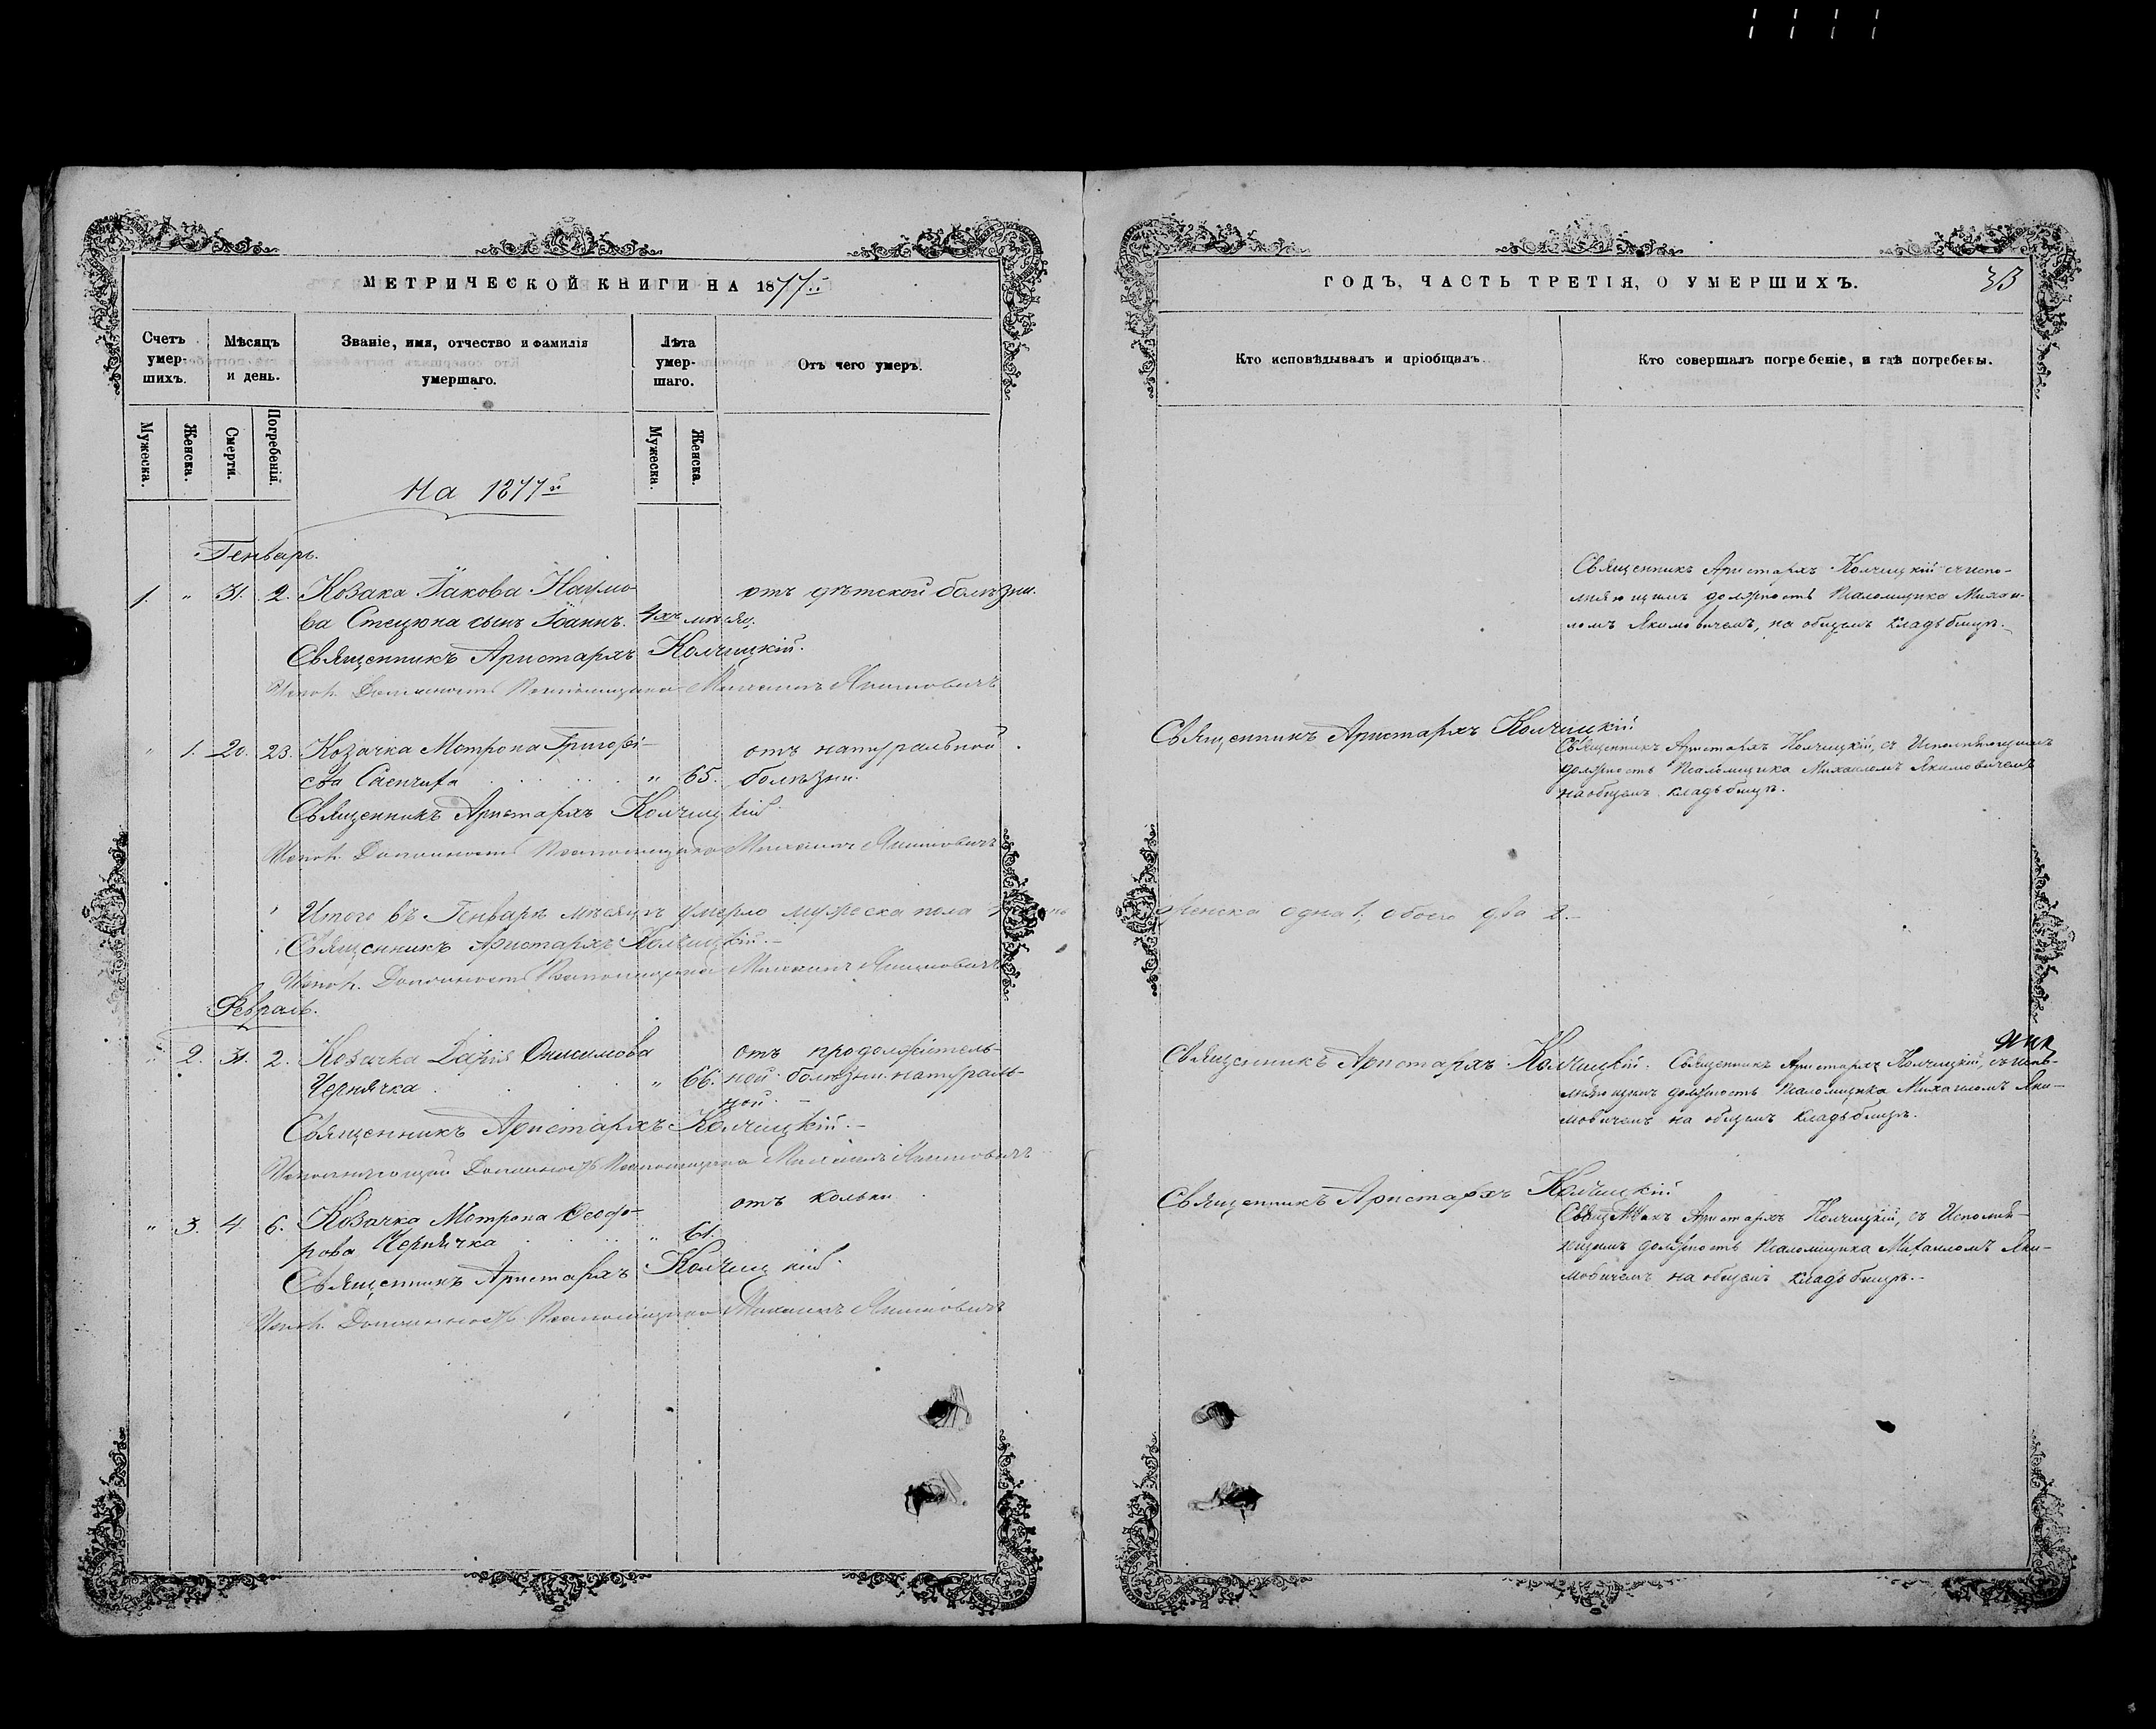 МЕТРИЧЕСКОЙ КНИГИ НА 1877й
Счетъ умер- шихъ.
Мѣсяцъ и день.
Званіе, имя, отчество и фамилія умершаго.
Лѣта умер- шаго.
Отъ чего умеръ.
Мужеска.
Женска.
Смерти.
Погребенія.
Мужеска.
Женска.
На 1877й
Генварь.
1. " 31. 2. Козака Іакова Наумо- отъ дѣтской болѣзни.
ва Стецюка сынъ Іоаннъ. 4хъ мѣсяц.
Священникъ Аристархъ Колчицкій.
Испол. Должность Псаломщика Михаилъ Якимовичъ
" 1. 20. 23. Козачка Мотрона Григорі- отъ натуральной
ева " 65. болѣзни.
Священникъ Аристархъ Колчицкій
Испол. Должность Псаломщика Михаилъ Якимовичъ
Итого въ Генварѣ мѣсяцѣ умерло мужеска пола
Священникъ Аристархъ Колчицкій.-
Испол. Должность Псаломщика Михаилъ Якимовичъ
Февраль.
" 2. 31. 2. Козачка Дарія Онисимова отъ продолжитель-
Чернячка " 66. ной болѣзни натураль-
ной. -
Священникъ Аристархъ Колчицкій.-
Исполняющій Должность Псаломщика Михаилъ Якимовичъ
отъ кольки
" 3. 4. 6. Козачка Мотрона Ѳеодо-
рова Чернячка " 61.
Священникъ Аристархъ Колчицкій.
Испол. Должность Псаломщика Михаилъ Якимовичъ
ГОДЪ, ЧАСТЬ ТРЕТІЯ, О УМЕРШИХЪ.
33
Кто исповѣдывалъ и пріобщалъ.
Кто совершалъ погребеніе, и гдѣ погребены.
Священникъ Аристархъ Колчицкій съ испо-
лняющимъ должность Псаломщика Михаи-
ломъ Якимовичемъ, на общемъ кладбищѣ.-
Священникъ Аристархъ Колчицкій
Священникъ Аристархъ Колчицкій, съ Исполняющимъ
должность Псаломщика Михаиломъ Якимовичемъ
на общемъ кладбищѣ.
женска одна 1, обоего два 2.-
Священникъ Аристархъ Колчицкій.
Священникъ Аристархъ Колчицкій, съ Испо-
лняющимъ должность Псаломщика Михаиломъ Яки-
мовичемъ на общемъ кладбищѣ.
Священникъ Аристархъ Колчицкій
Священникъ Аристархъ Колчицкій, съ Исполня-
ющимъ должность Псаломщика Михаиломъ Яки-
мовичемъ на общемъ кладбищѣ.-